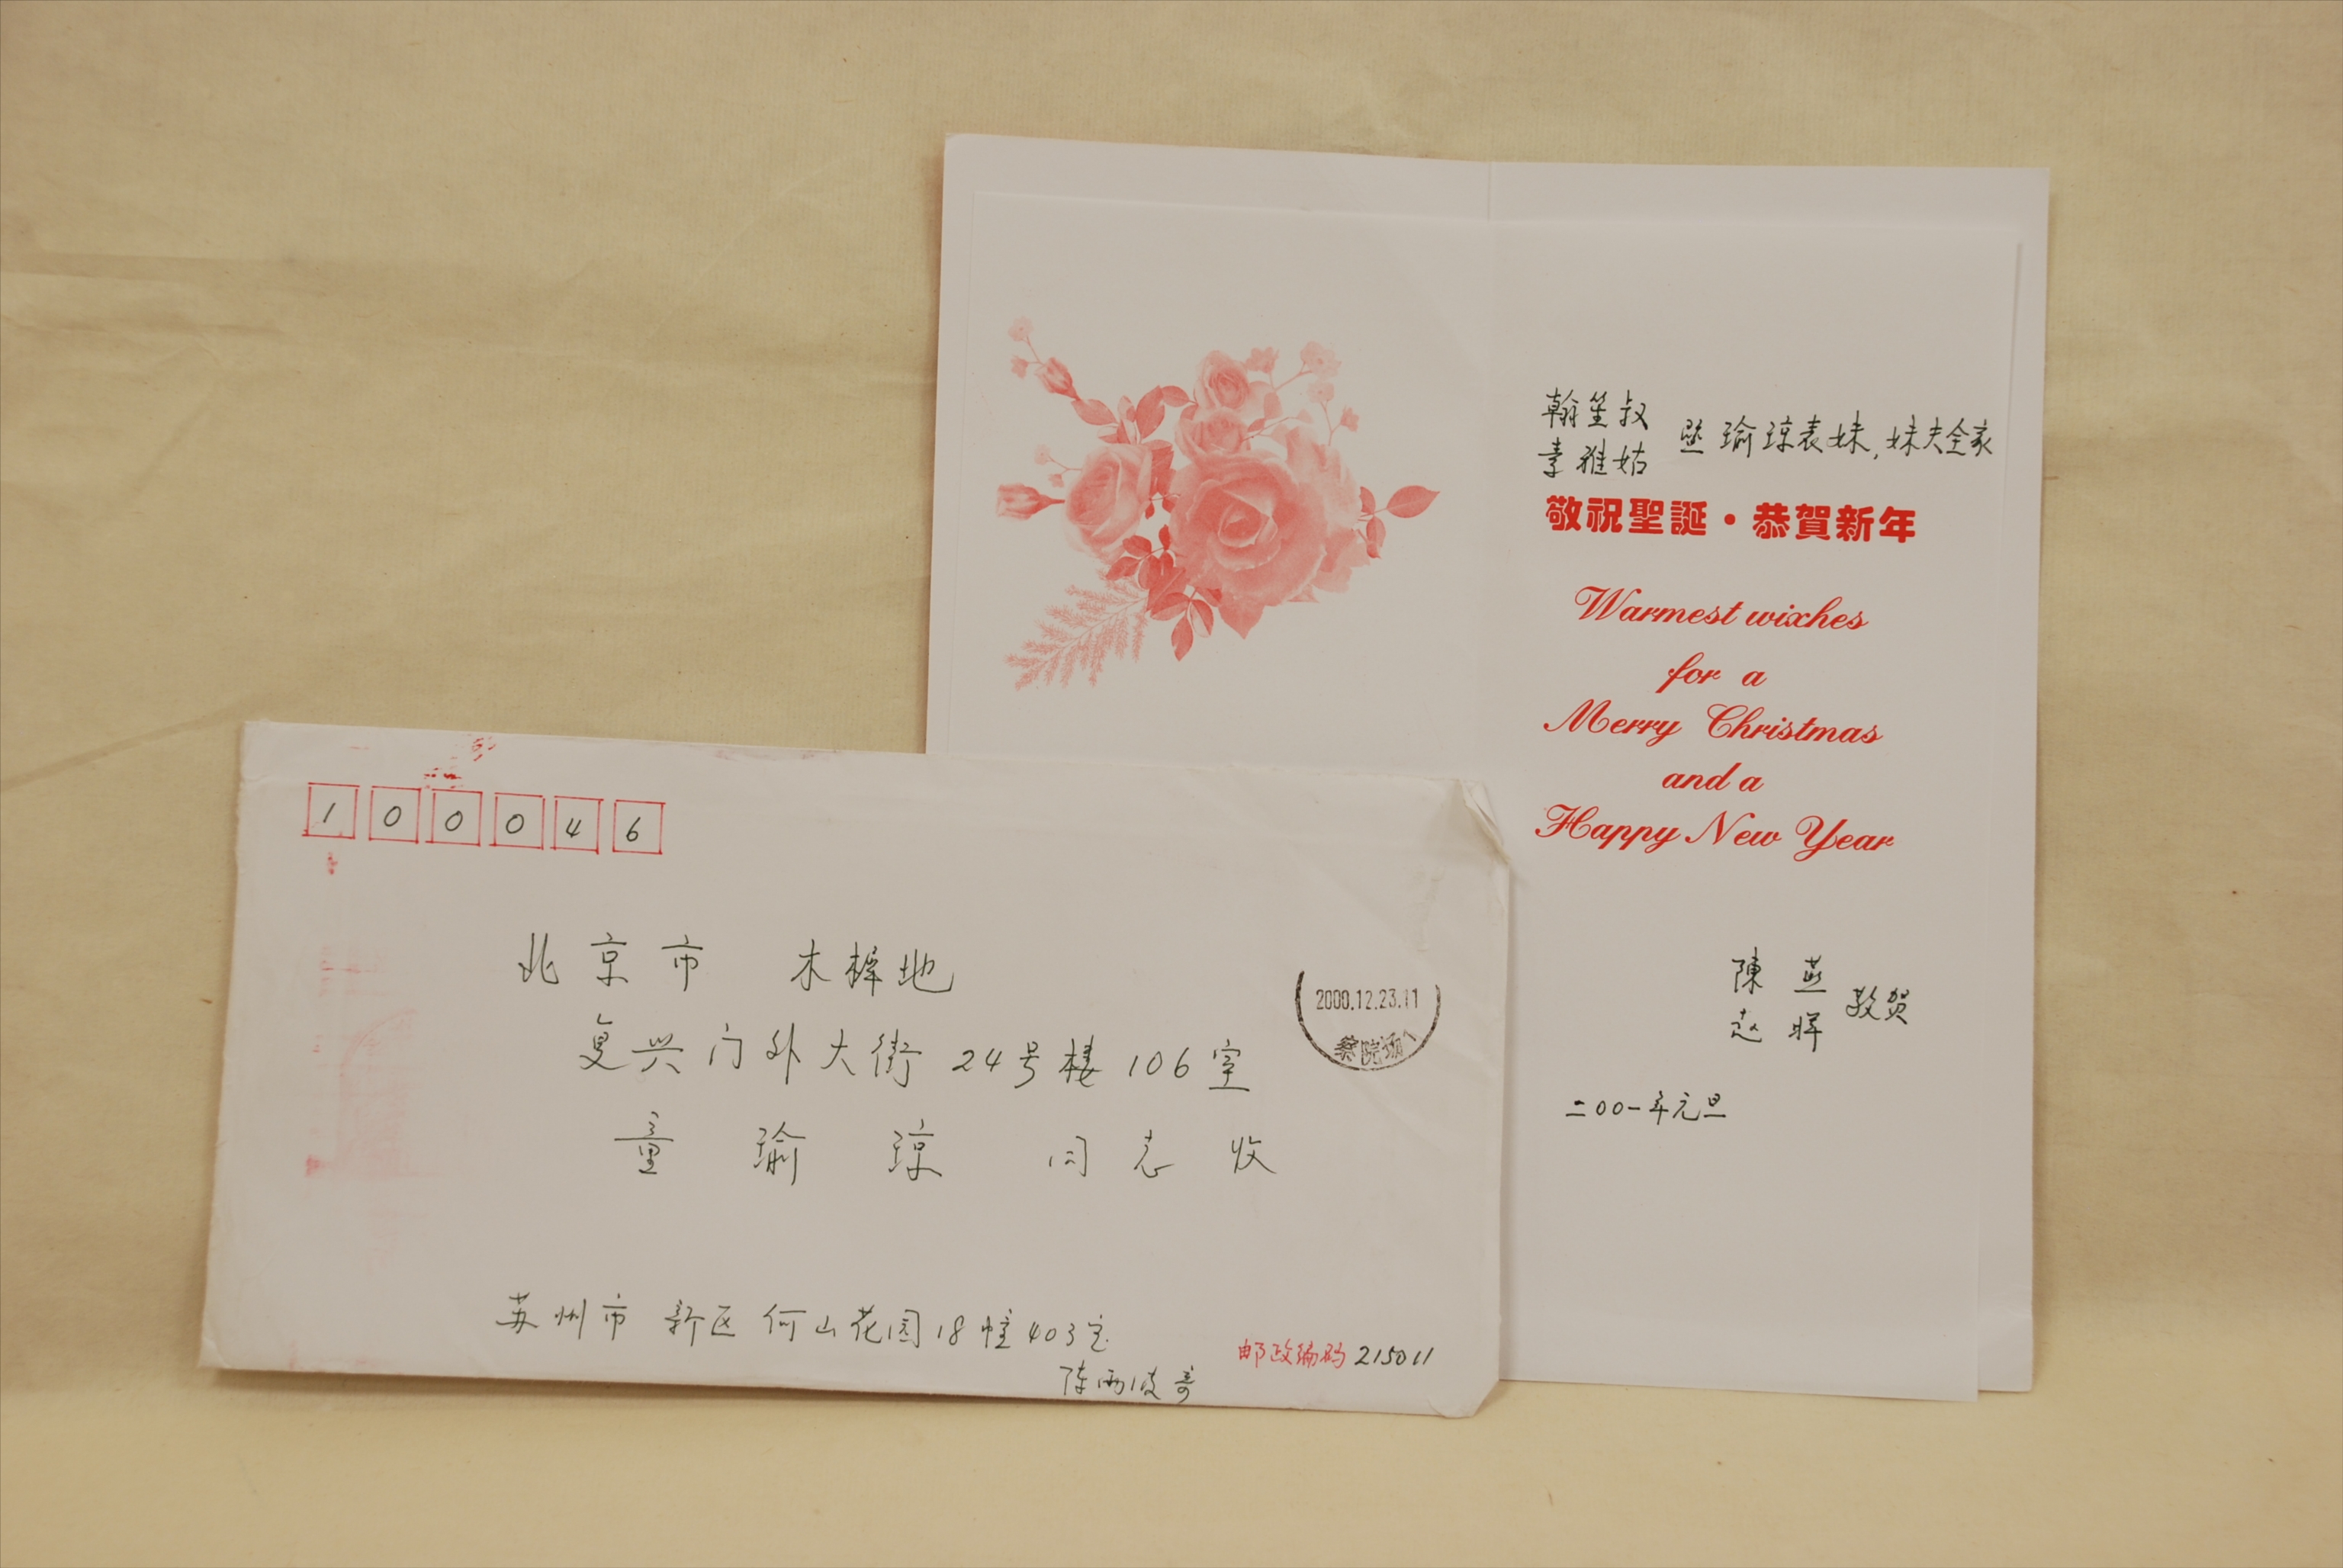 翰笙叔
素雅姑
暨瑜琼表妹,妹夫全家
敬祝聖誕・恭賀新年
Warmest wixhes
for a
Merry Christmas
and a
Happy New Year
陳燕
赵晖
敬贺
二00一年元旦
100046
北京市 木樨地
复兴门外大街24号楼106室
童瑜琼 同志收
2000.12.23.11
苏州市 新区何山花园18幢403室
邮政编码 215011